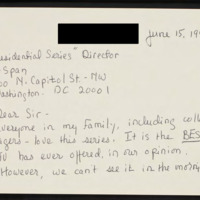 June 15, 19
residential Series" Director
-Span
00 N. Capitol St. - NW
ashington. DC 20001
Dear Sir -
everyone in my Family, including colle
agers - love this series. It is the BES
TV has ever offered, in our opinion.
However, we can't see it in the morn